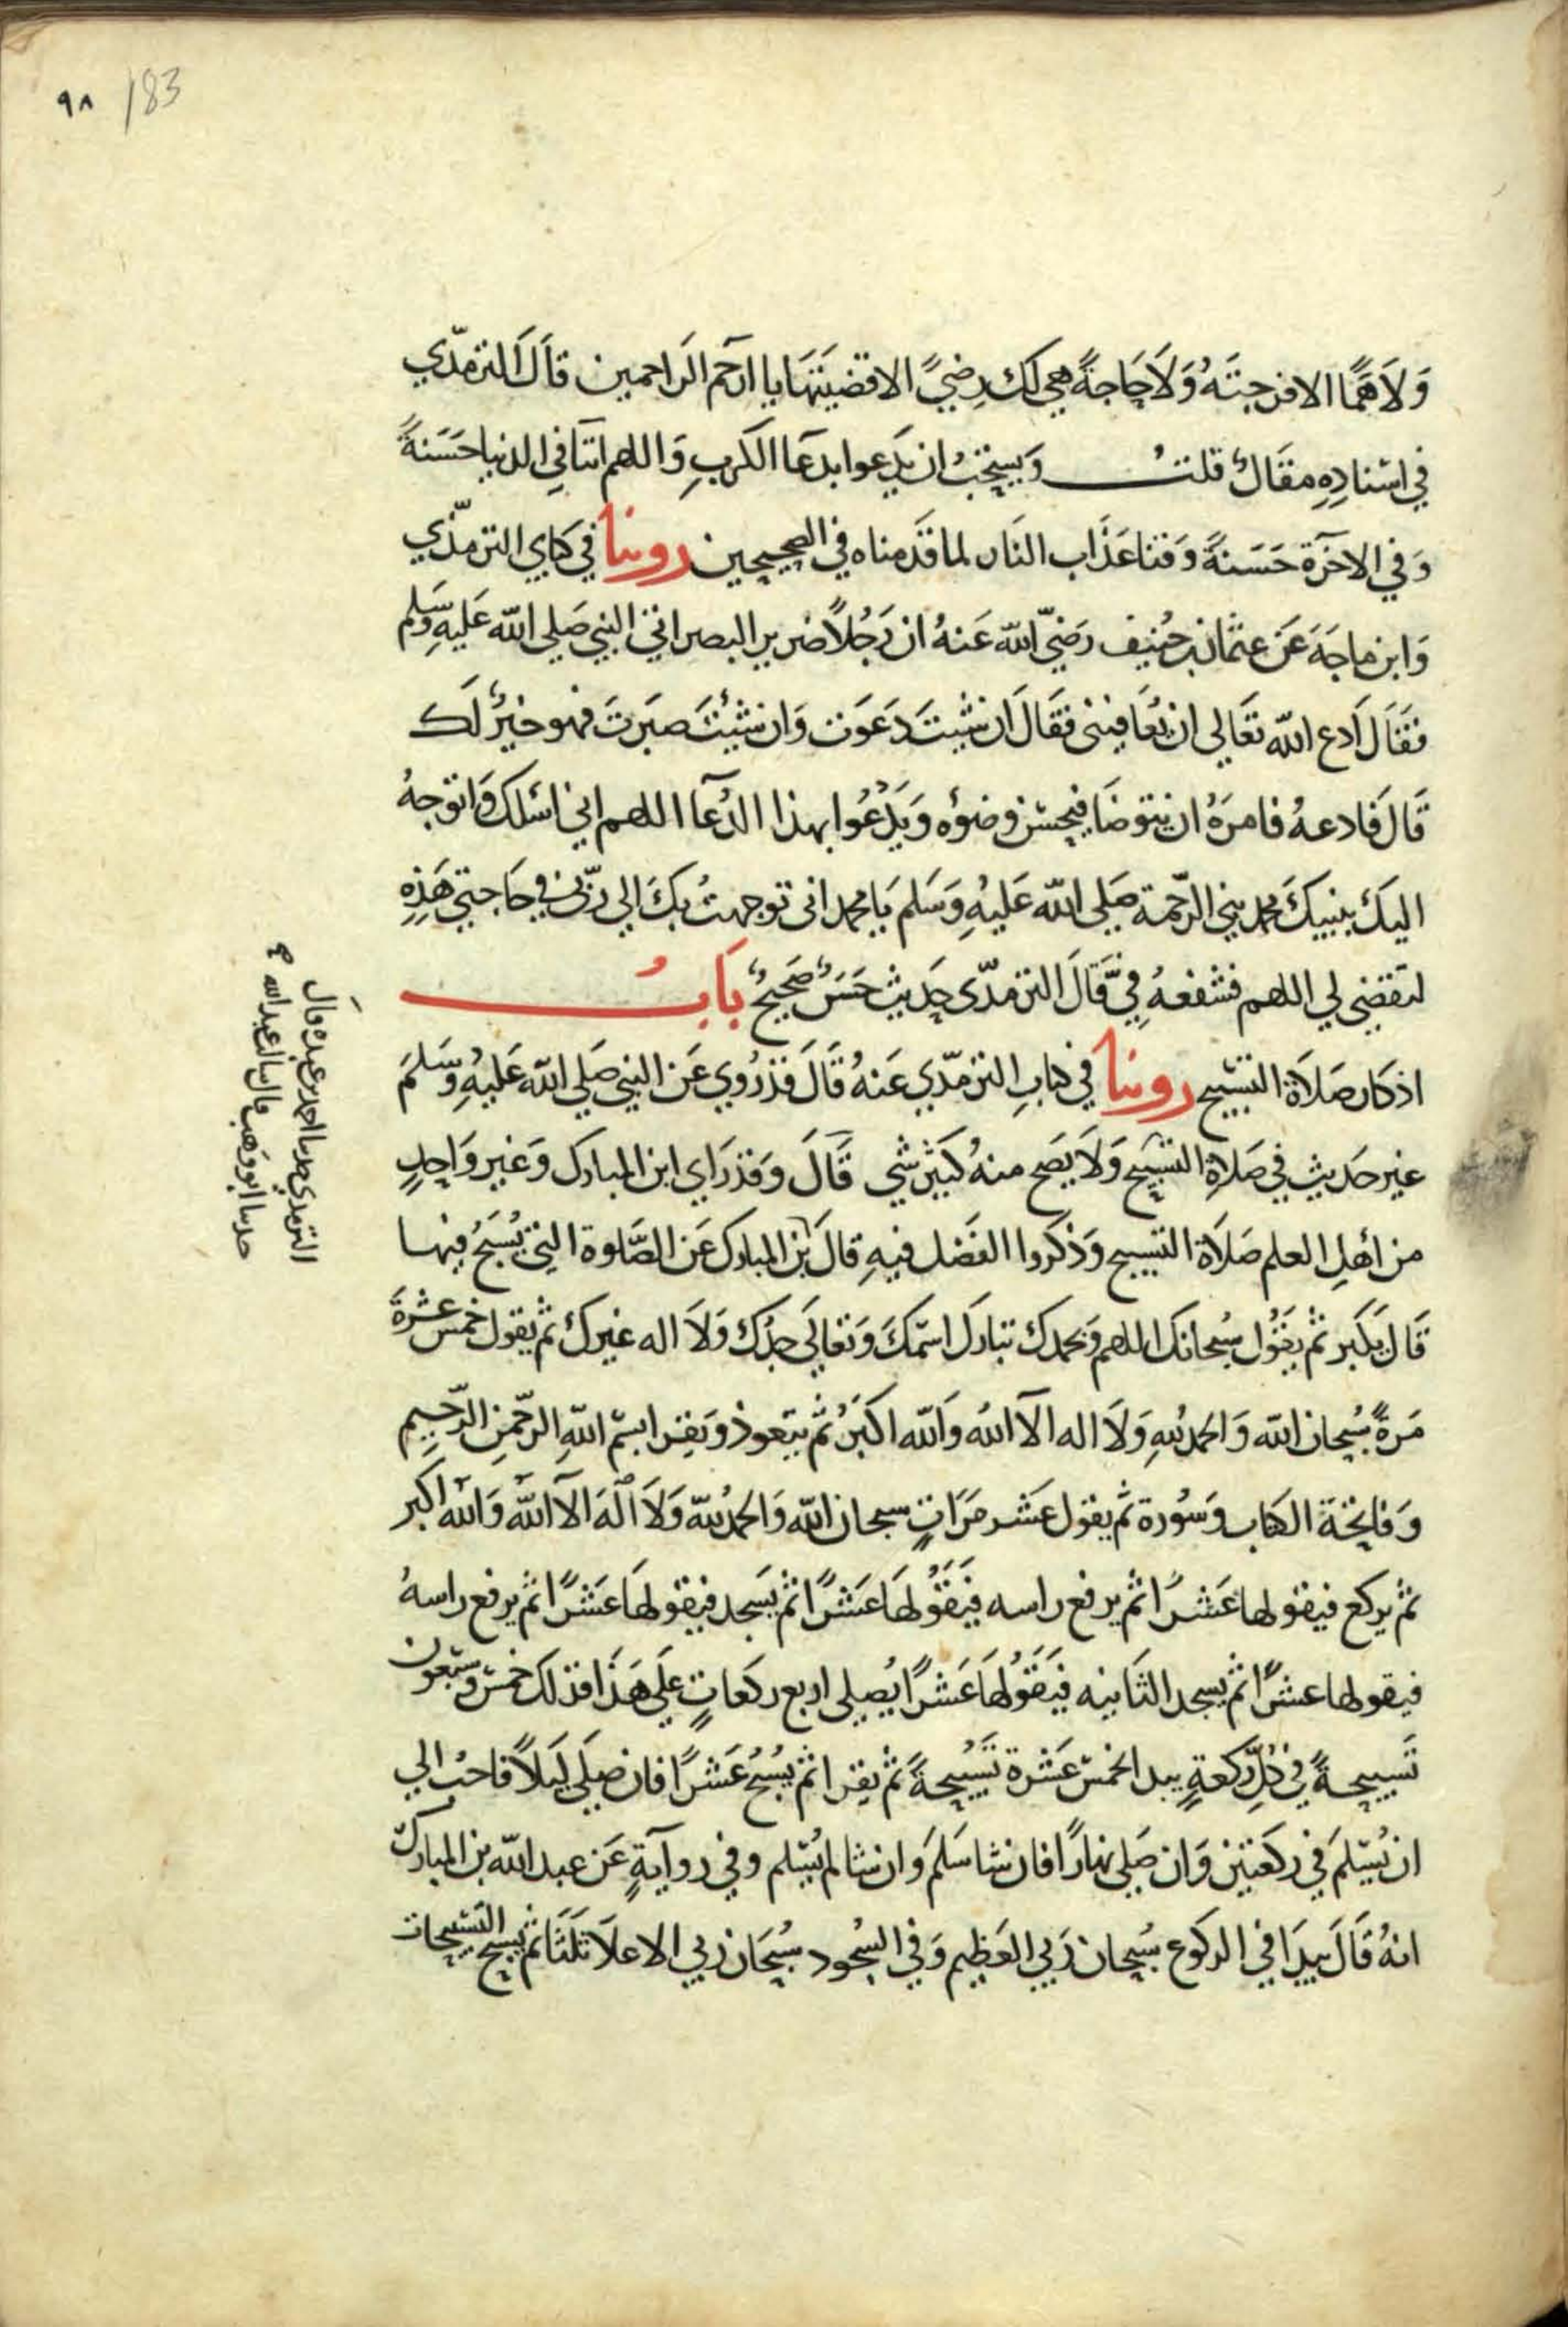 ٩٨ / 83
وَلَا هَمًّا الا فرجتَهُ وَلَا حَاجةً هي لك رِضيً الا قضيَتَهَا يا ارحَم الرَاحمين قالَ الترمذي
في اسْنادِهِ مقَالٌ قلتُ وَيسْتحَبُ ان يَدعوا بدعَا الكَربِ وَاللهم اتنا في الدنيا حَسَنةً
وَفي الاخرَة حَسَنةً وَقنا عَذَاب النَار لما قَدمناه في الصحيحين روينا في كتابي الترمذي
وَابن ماجَة عَن عثمان بن حُنيف رَضيَ الله عَنهُ ان رَجُلاً ضرير البصر اتي النبي صَلي الله عَليهِ وسَلم
فقَالَ ادع الله تعَالي ان يُعَافيني فقَال ان شيتَ دَعَوت وَان شئِتَ صَبَرتَ فهو خيرٌ لَك
قَالَ فَادعهُ فامرَهُ ان يتوضَا فيحسن وضوُءه وَيَدْعُوا بهذا الدُعَا اللهم اني اسْلك وَاتوجهُ
اليكَ بنبيكَ محمد نبي الرّحمة صَلي الله عَليهِ وَسَلم يَا محمد اني توجهتُ بكَ الي رَبّي في حَاجتي هَذِهِ
لتقضي لي اللهم فشفعهُ فيَّ قَالَ الترمذّي حَديث حَسَنٌ صَحيحٌ بَابُ
اذكار صَلَاة التسْبيح روينا في كتابِ الترمذّي عَنهُ قَالَ قَد رُوي عَن النبي صَلي الله عَليهِ وسَلمَ
غير حَديث في صَلاةِ التسْبيح وَلَا يَصَح منهُ كَبيَر شي قَالَ وَقد رَاي ابن المبارك وَغَير وَاحدٍ
من أهلِ العلم صَلَاة التسبيح وَذكَروا الفَضل فيهِ قالَ بن المبارك عَن الصَّلوة التي يُسَبحُ فيها
قَال يكَبر ثم يقَوُل سبُحانك اللهم وَبحمدك تبارك اسمكَ وَتعَالي جَدُك وَلَا اله غيرك ثم يقول خمس عشرةَ
مَرةً سبُحان الله وَالحمد لله وَلَا اله الا الله وَالله اكبَرُ ثم يتَعوذ وَيقرا بسْم اللهِ الرحمنِ الرّحيم
وَفاتحَة الكتاب وَسُورة ثم يقول عَشر مَرَاتٍ سبحان الله وَالحمد لله وَلَا الهَ الا الله وَالله اكبر
ثم يركع فيقولها عَشرًا ثم يرفع راسه فيَقَوُلهَا عَشرًا ثم يسَجد فيقولهَا عَشرًا ثم يرفع راسهُ
فيقولها عشرًا ثم يسجد الثَانيه فيَقَوُلهَا عَشرًا يُصلي اربع ركعَاتٍ عَلَي هَذَا فذلك خمس وسَبعون
تَسبيحةً في كُلِّ رَكعةٍ يبدا بخمس عَشرة تَسْبيحةً ثم يقِرا ثم يُسَبحُ عَشرًا فان صَلَي لَيلاً فاحبُ الي
ان يُسَلمَ في ركَعتين وَان صَلي نهارًا فان شا سَلمَ وان شا لم يُسَلم وفي روايَةٍ عَن عبد الله بن المبارك
انهُ قَالَ يبدَا في الركَوُع سبُحان رَبي العَظيم وَفي السُجود سُبحَان رَبي الاعلَا ثلثًا ثم يسَبح التسْبيحَات
الترمذي حدثنا احمد بن عبده قال
حدثنا ابو وهب قال سالت عبد الله